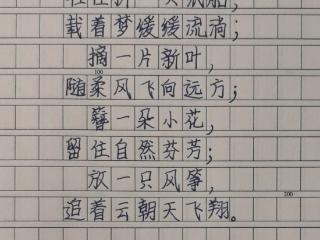 载着梦缓缓流淌；
摘一片新叶，
100
随柔风飞向远方；
簪一朵小花，
留住自然芬芳；
放一只风筝，
200
追着云朝天飞翔。